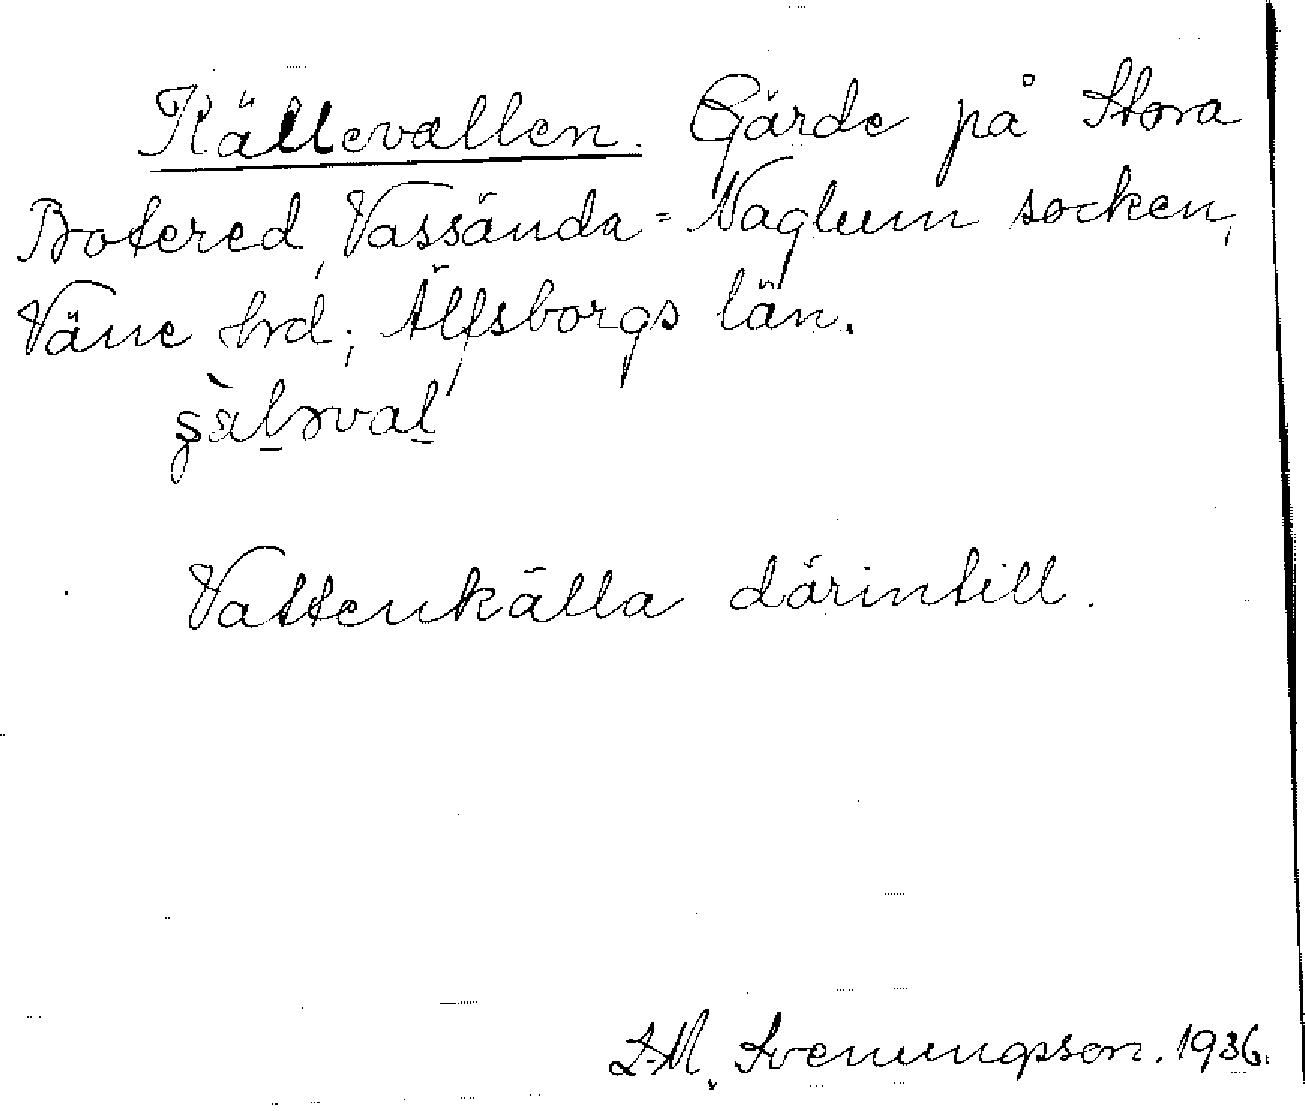 Källevallen. Gärde på Stora
Botered, Vassända-Naglum socken,
Väne hrd; Älfsborgs län.
Vattenkälla därintill.
Svenungsson. 1936.